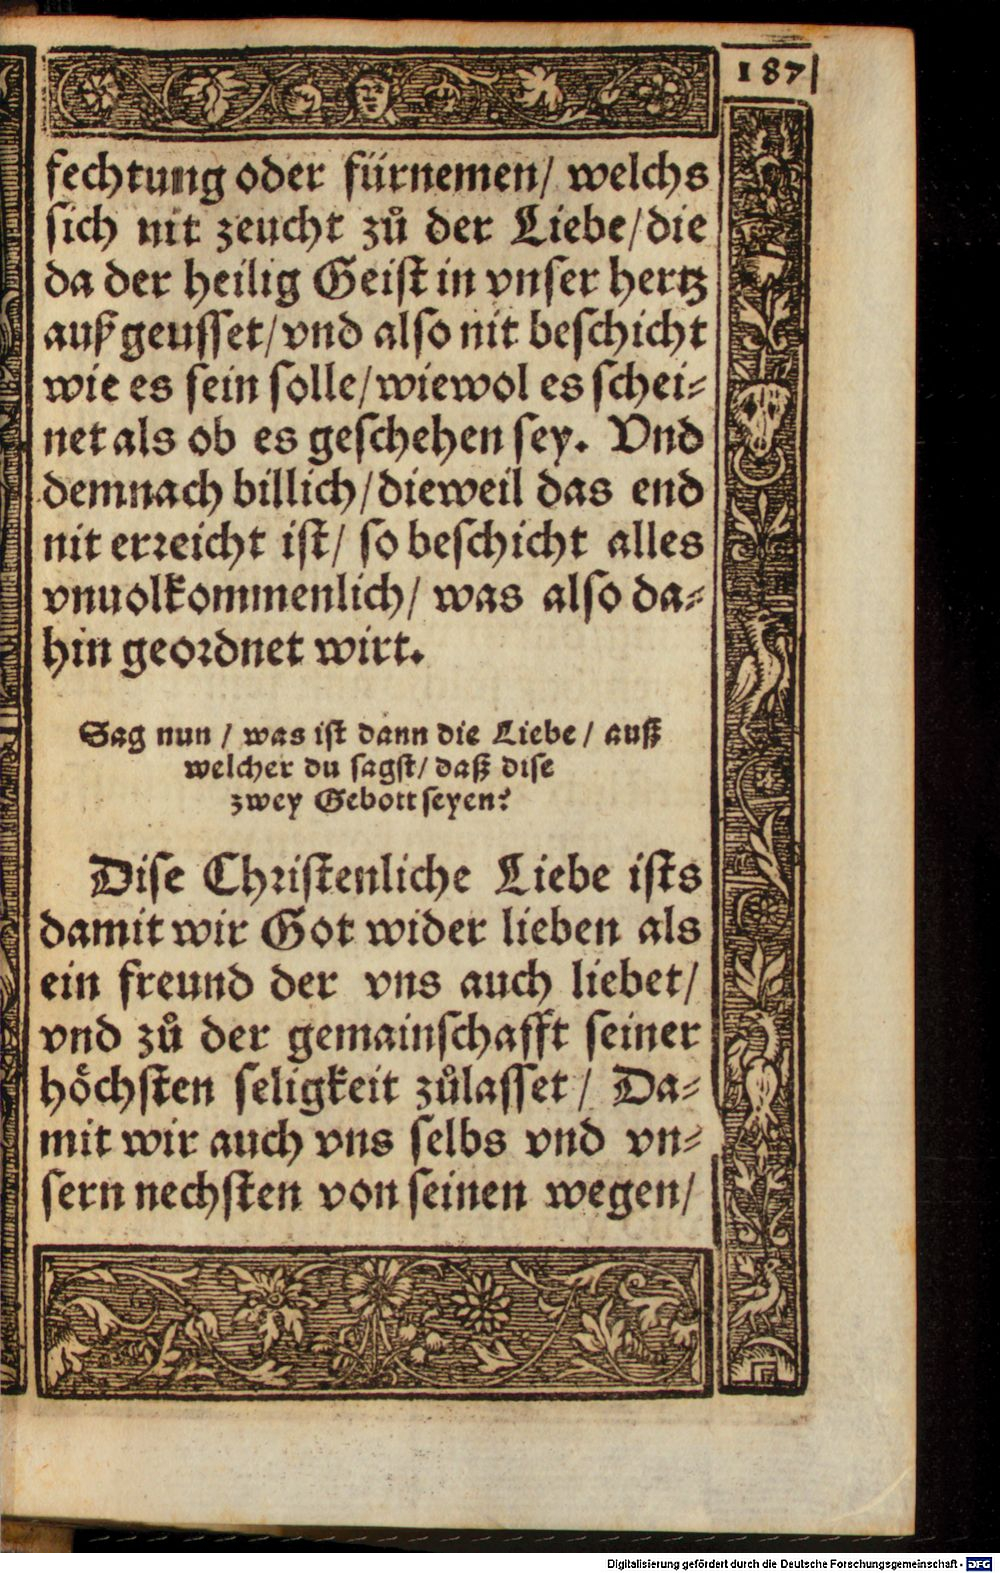 187
fechtung oder fürnemen/ welchs
sich nit zeucht zů der Liebe/die
da der heilig Geist in vnser hertz
auß geusset/vnd also nit beschicht
wie es sein solle/wiewol es schei⸗
net als ob es geschehen sey. Vnd
demnach billich/dieweil das end
nit erreicht ist/ so beschicht alles
vnuolkommenlich/ was also da⸗
hin geordnet wirt.
Sag nun / was ist dann die Liebe / auß
welcher du sagst/ daß dise
zwey Gebott seyen?
Dise Christenliche Liebe ists
damit wir Got wider lieben als
ein freund der vns auch liebet/
vnd zů der gemainschafft seiner
höchsten seligkeit zůlasset / Da⸗
mit wir auch vns selbs vnd vn⸗
sern nechsten von seinen wegen/
Digitalisierung gefördert durch die Deutsche Forschungsgemeinschaft - DFG